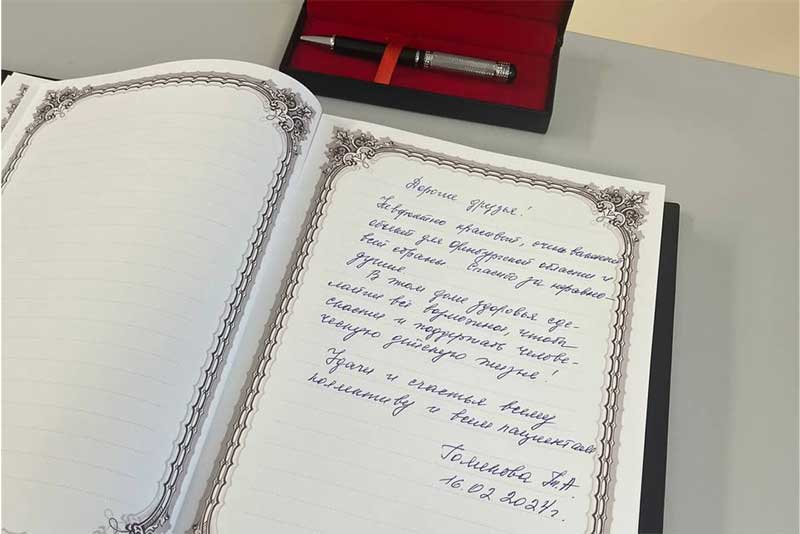 Дорогие друзья!
Невероятно красивый, очень важный
объект для Оренбургской области и
всей страны. Спасибо за неравно-
душие.
В этом доме здоровья сде-
лайте всё возможное, чтобы
спасти и поддержать челове-
ческую детскую жизнь!
Удачи и счастья всему
коллективу и всем пациентам
Голикова Т.А.
16.02.2024г.